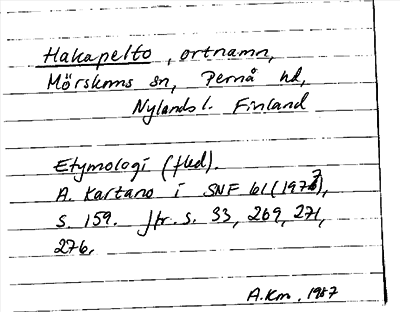 Hakapelto, ortnamn,
Mörskoms sn, Pernå hd,
Nylands l. Finland
Etymologi (fled).
A. Kartano i SNF 61 (1977),
s. 159. Jfr. s. 33, 269, 271,
276,
A.Km, 1987